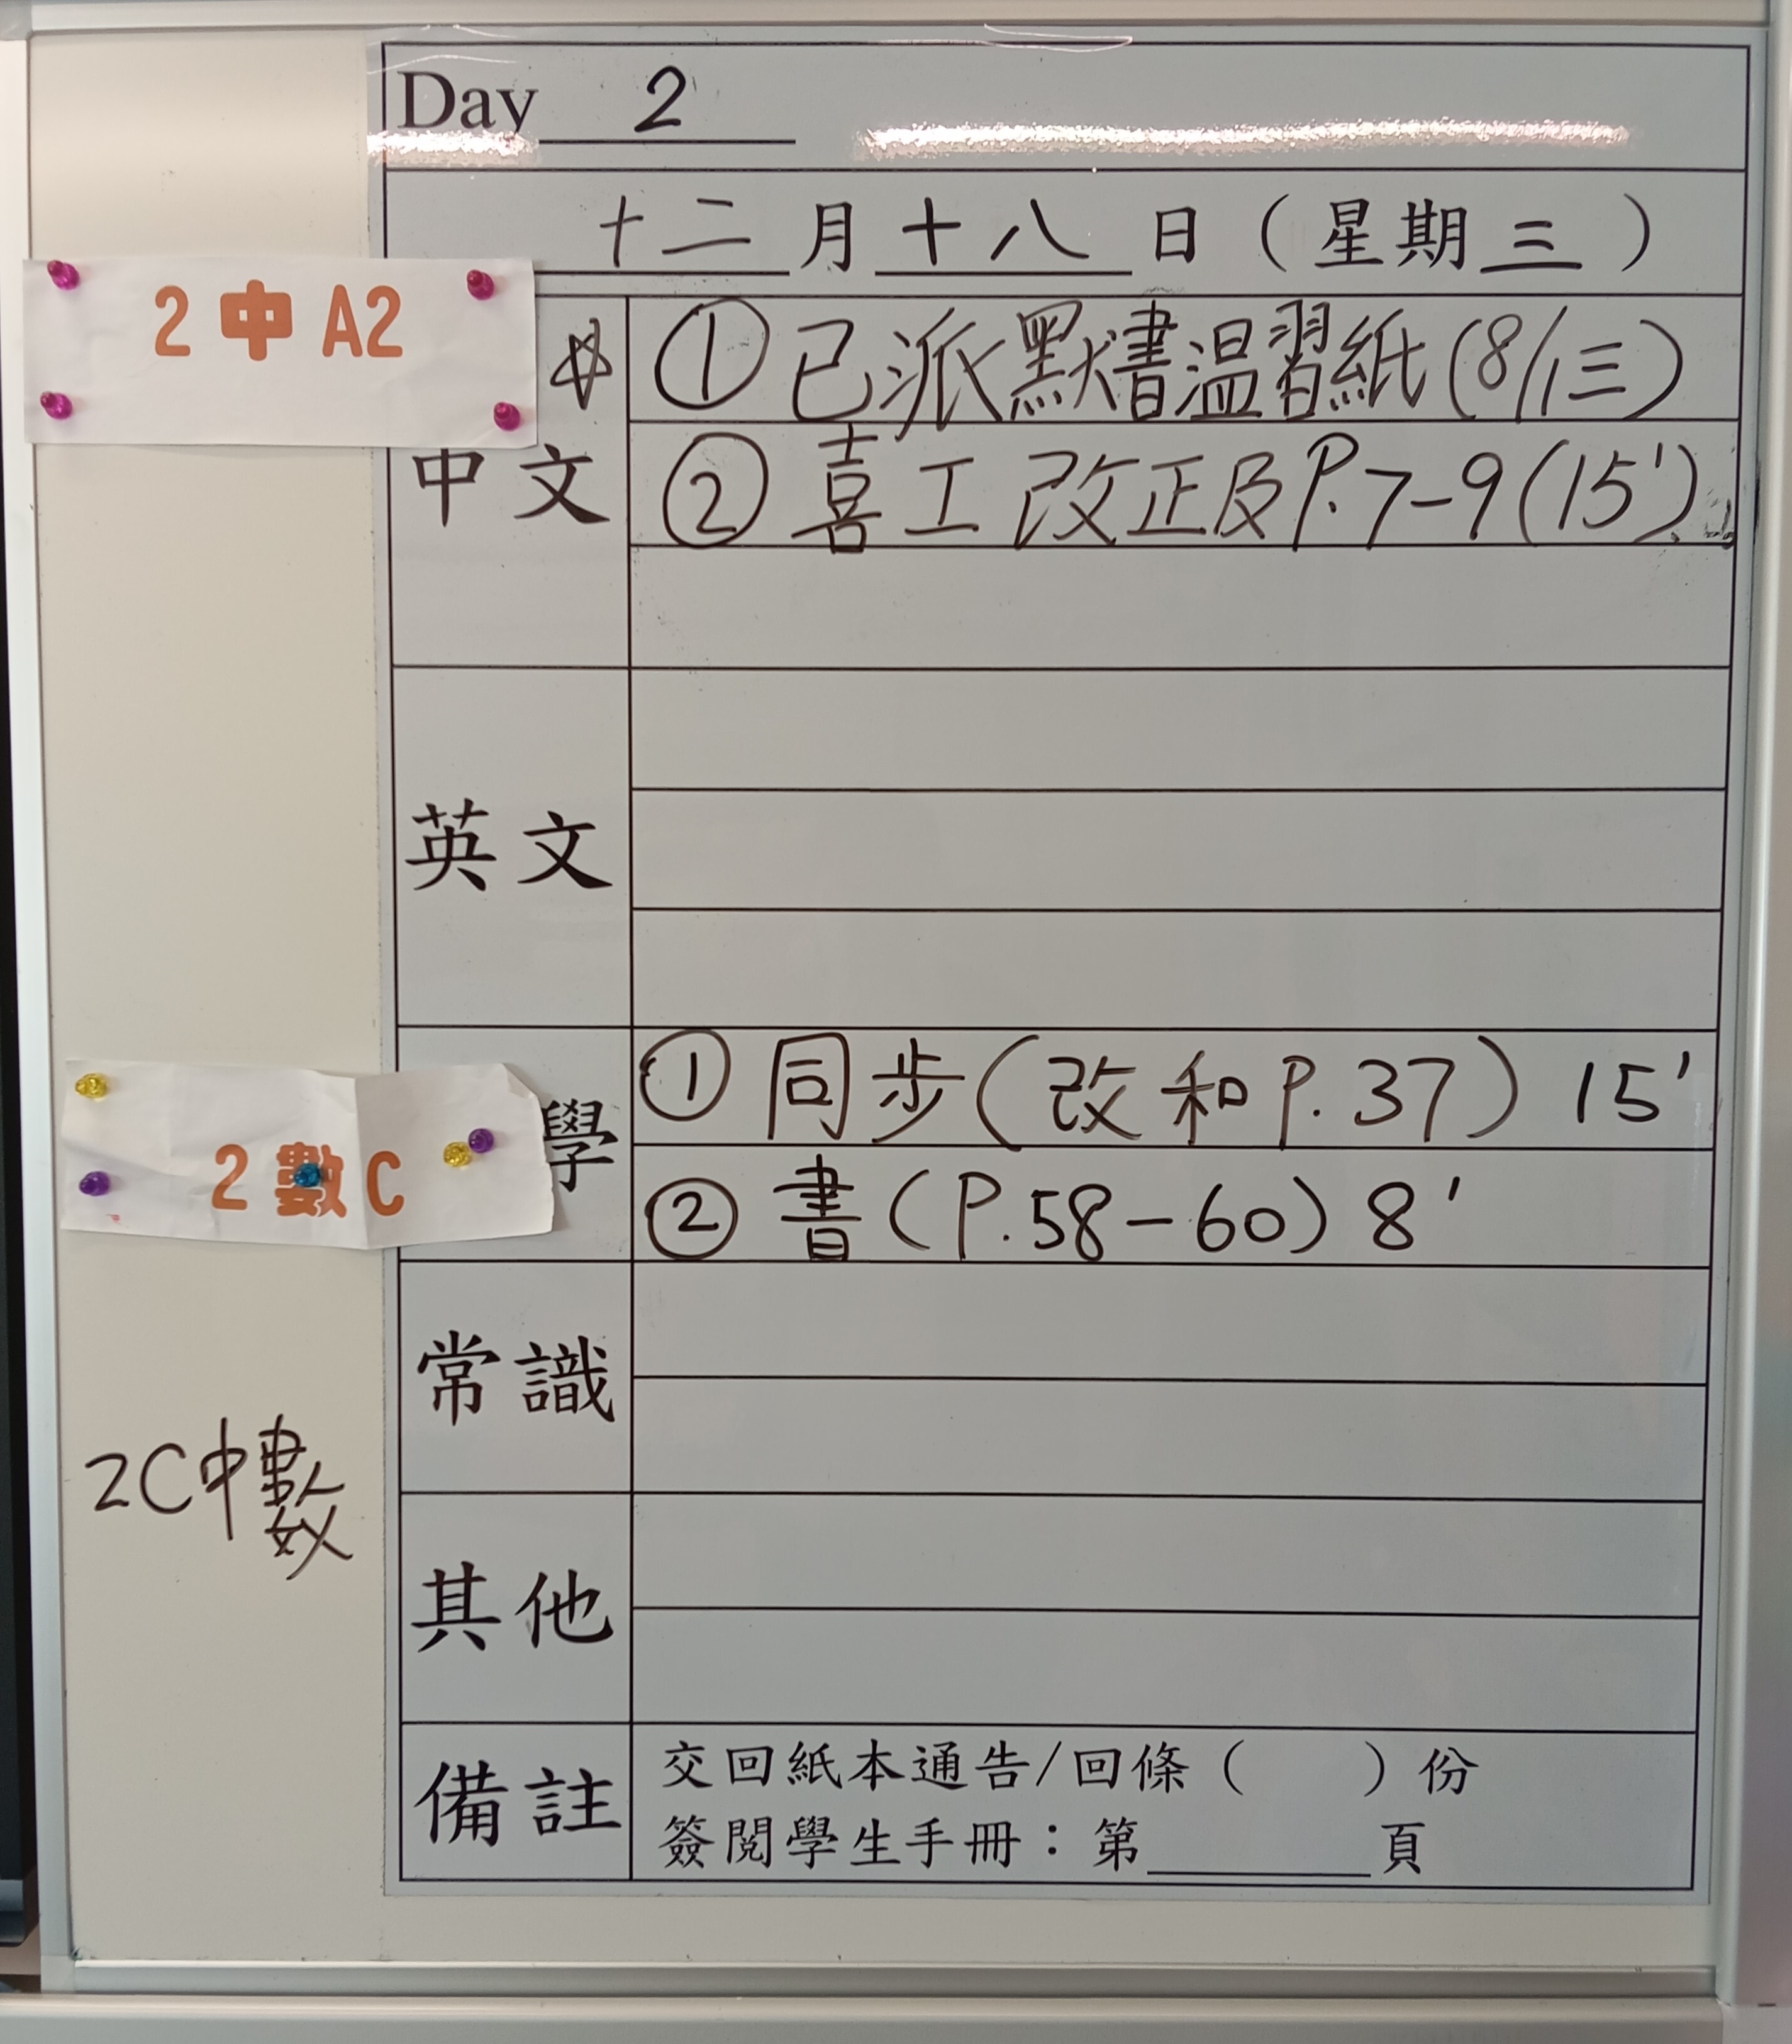 Day 2
十二月十八日（星期三）
2中A2
中文
①已派默書温習紙(8/1三)
②喜工改正及P.7-9(15')
英文
2數C
學
①同步(改和P.37) 15'
②書(P.58-60) 8'
常識
2C中數
其他
備註
交回紙本通告/回條（　　）份
簽閱學生手冊：第____頁